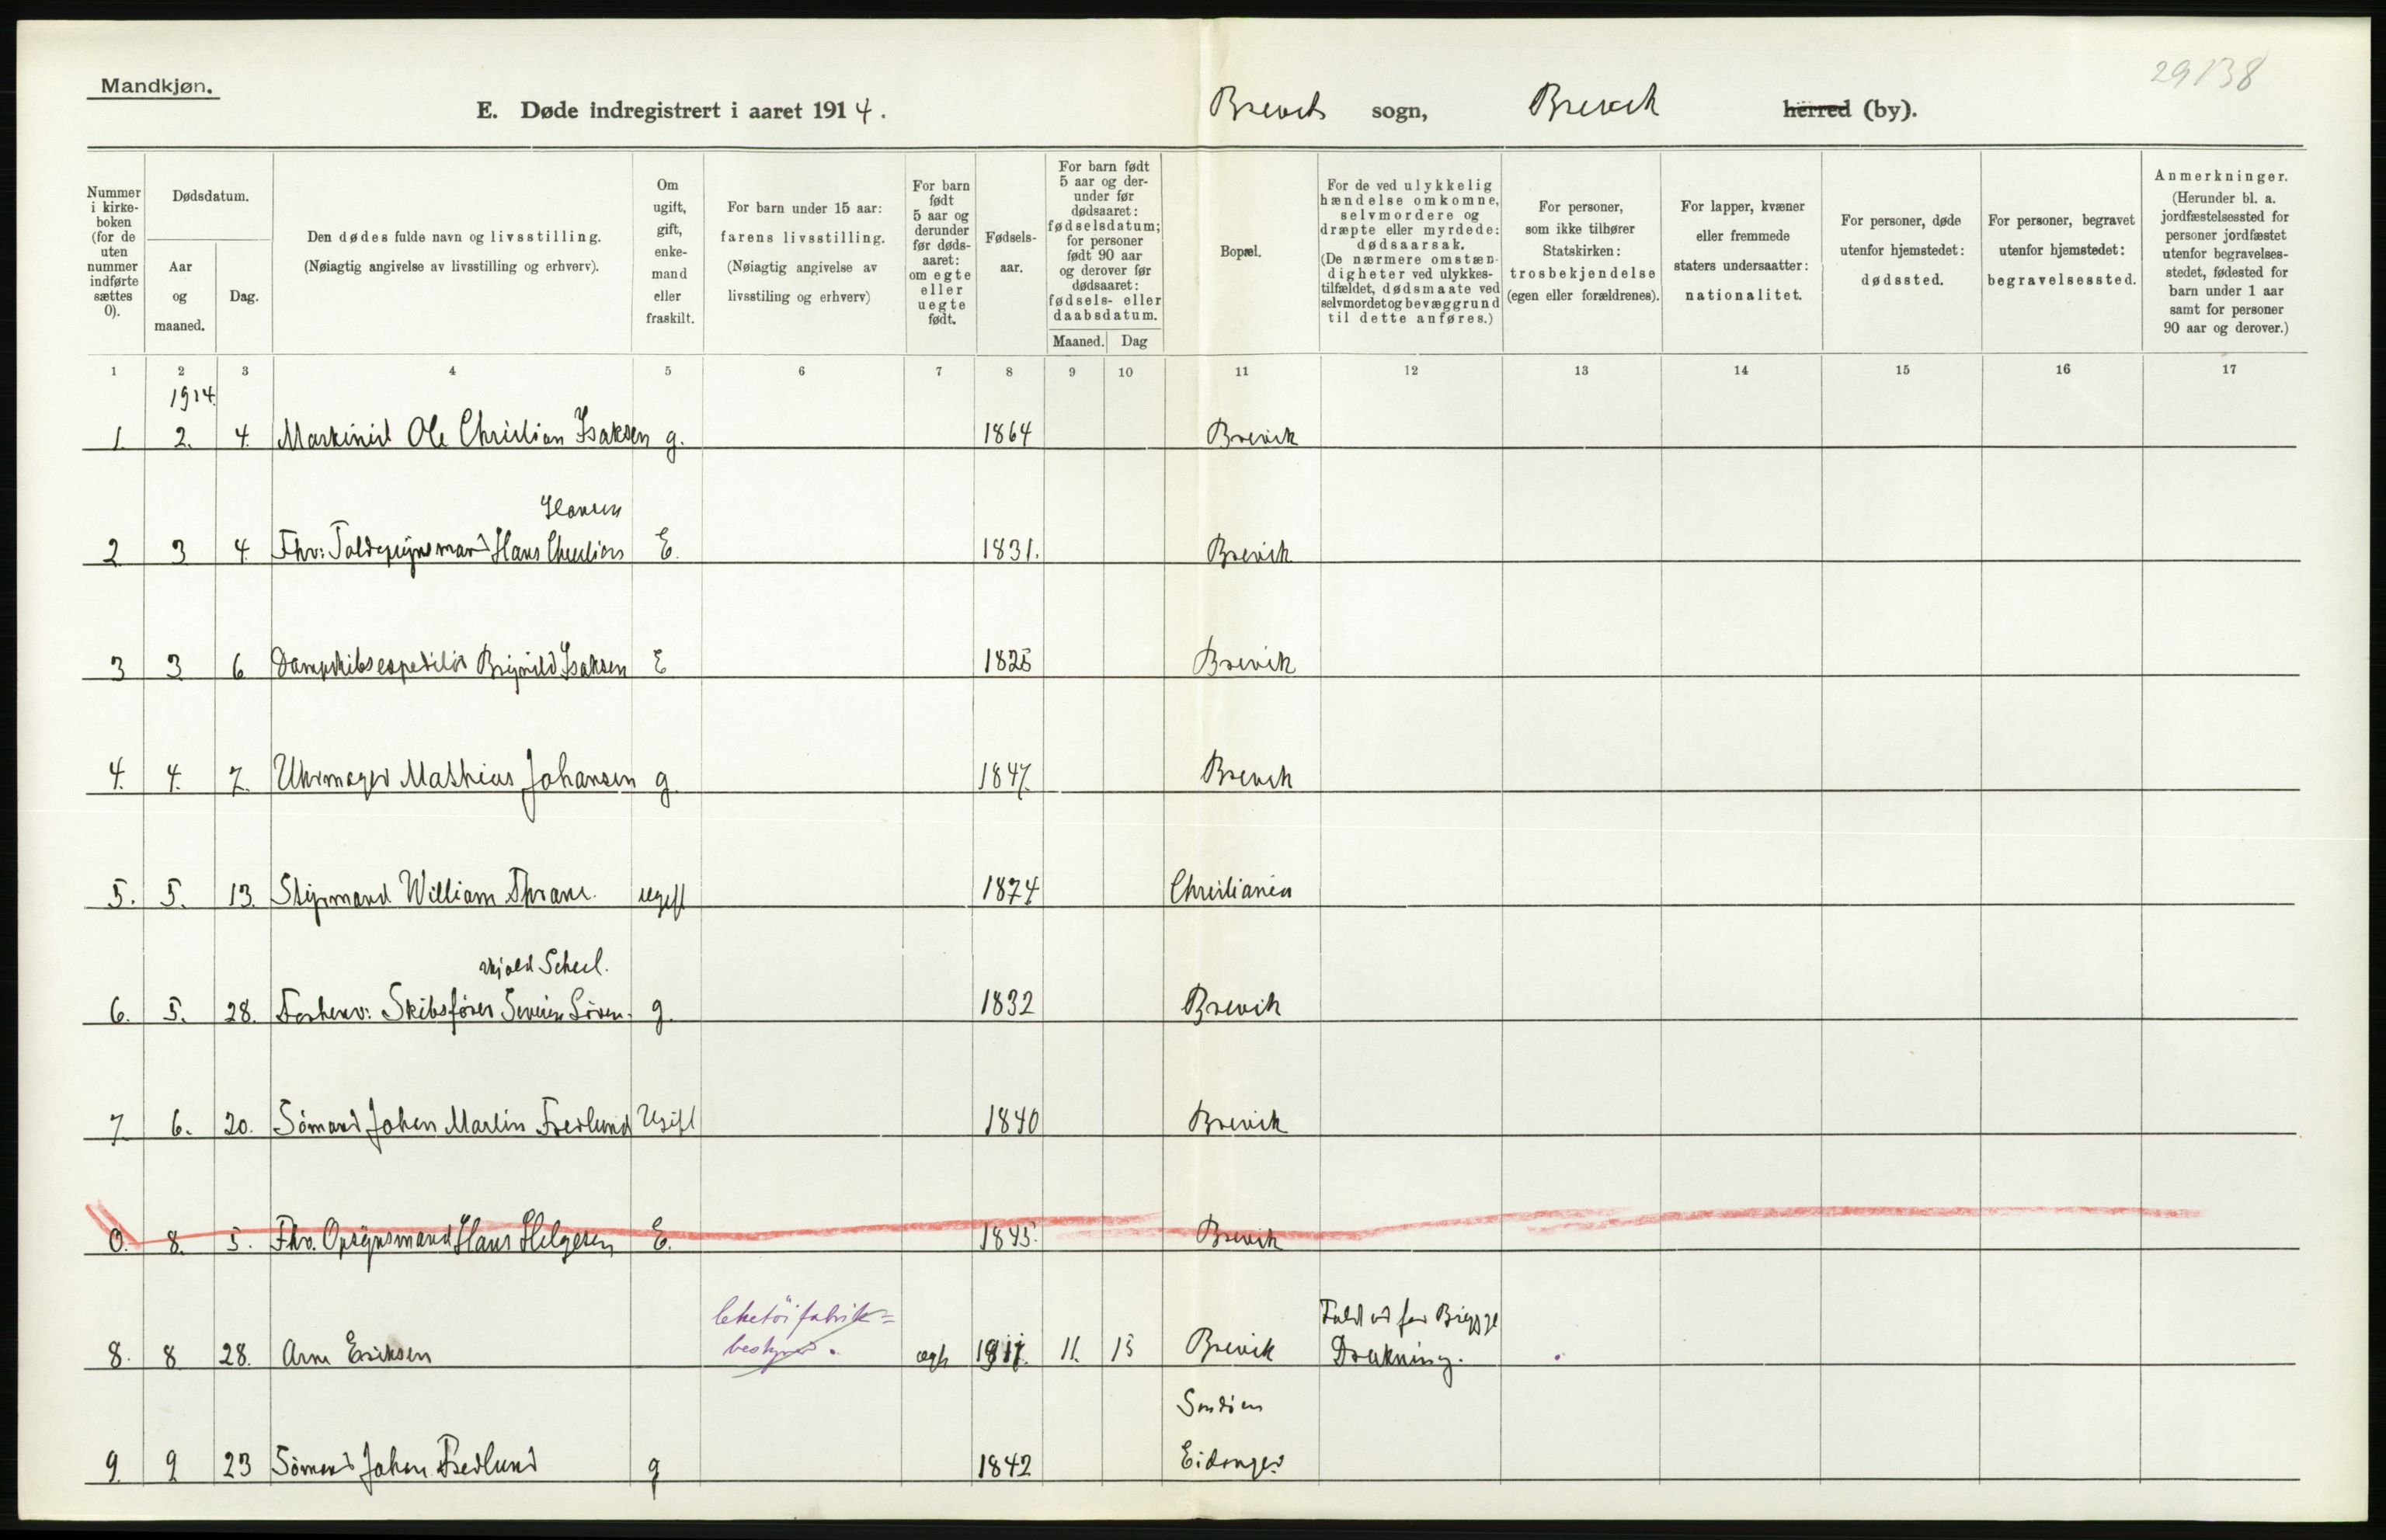 29138
Mandkjøn.
E. Døde indregistrert i aaret 1914. Brevik sogn, Brevik herred (by).
Nummer i kirke- boken (for de uten nummer indførte sættes 0).
Dødsdatum.
Aar og maaned.
Dag.
Den dødes fulde navn og livsstilling.
(Nøiagtig angivelse av livsstilling og erhverv).
Om ugift, gift, enke- mand eller fraskilt.
For barn under 15 aar:
farens livsstilling.
(Nøiagtig angivelse av
livsstiling og erhverv)
For barn født 5 aar og derunder før døds- aaret: om egte eller uegte født.
Fødsels- aar.
For barn født 5 aar og der- under før dødsaaret: fødselsdatum; for personer født 90 aar og derover før dødsaaret: fødsels- eller daabsdatum.
Maaned. Dag
Bopæl.
For de ved ulykkelig hændelse omkomne, selvmordere og dræpte eller myrdede: dødsaarsak. (De nærmere omstæn- digheter ved ulykkes- tilfældet, dødsmaate ved selvmordet og bevæggrund til dette anføres.)
For personer, som ikke tilhører Statskirken: trosbekjendelse (egen eller forældrenes).
For lapper, kvæner eller fremmede staters undersaatter: nationalitet.
For personer, døde utenfor hjemstedet: dødssted.
For personer, begravet utenfor hjemstedet: begravelsessted.
Anmerkninger. (Herunder bl. a. jordfæstelsessted for personer jordfæstet utenfor begravelses- stedet, fødested for barn under 1 aar samt for personer 90 aar og derover.)
1 2 3 4 5 6 7 8 9 10 11 12 13 14 15 16 17
1914.
1. 2. 4. Maskinist Ole Christian Isaksen g. 1864 Brevik
Hansen
2 3 4. Fhv: Toldopsynsmand Hans Christian E. 1831. Brevik
3 3 6 Dampskibsexpeditør Brynild Isaksen E 1825 Brevik
4. 4. 7. Uhrmager Mathias Johansen g. 1847. Brevik
5. 5. 13. Styrmand William Thrane. ugift 1874 Christiania
skjold Scheel.
6. 5. 28. Forhenv: Skibsfører Severin Løven- g. 1832 Brevik
7. 6. 20. Sømand Johan Martin Fredlund Ugift 1840 Brevik
0. 8. 5. Fhv. Opsynsmand Hans Helgesen E. 1845. Brevik
leketöifabrik= Fald ut for Brygge
8. 8 28. Arne Eriksen bestyrer. ægte 1911. 11. 15 Brevik Drukning.
9. 9 23 Sømand Johan Fredlund g 1842 Eidanger